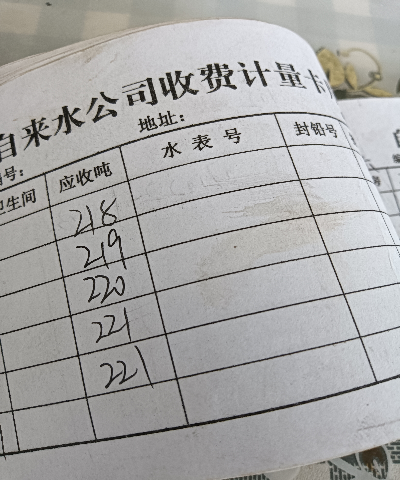 自来水公司收费计量卡
号: 地址:
卫生间 应收吨 水表号 封铅号
218
219
220
221
221